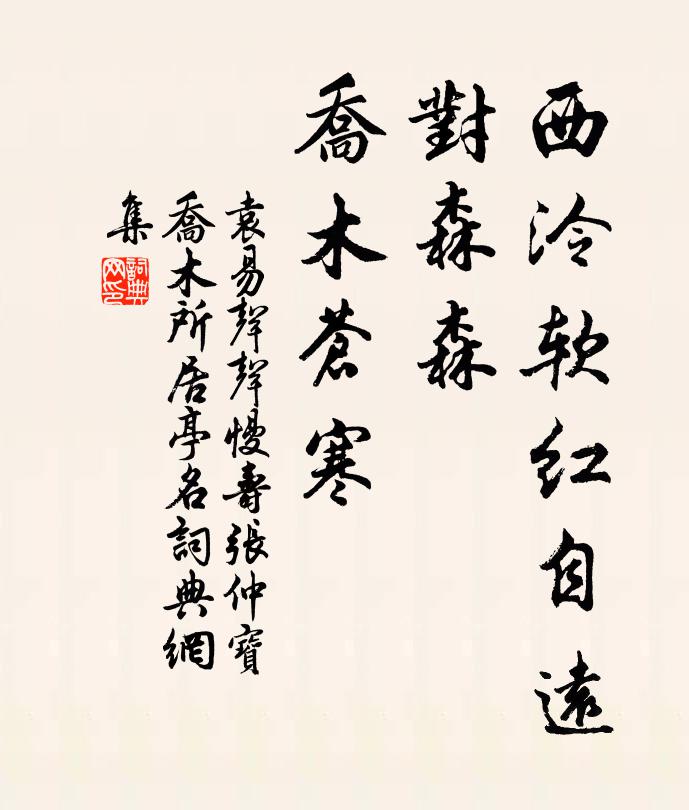 西泠软红自遠
對森森
喬木蒼寒
袁易聲聲慢壽張仲寶
喬木所居亭名詞典網
集
詞典
网印